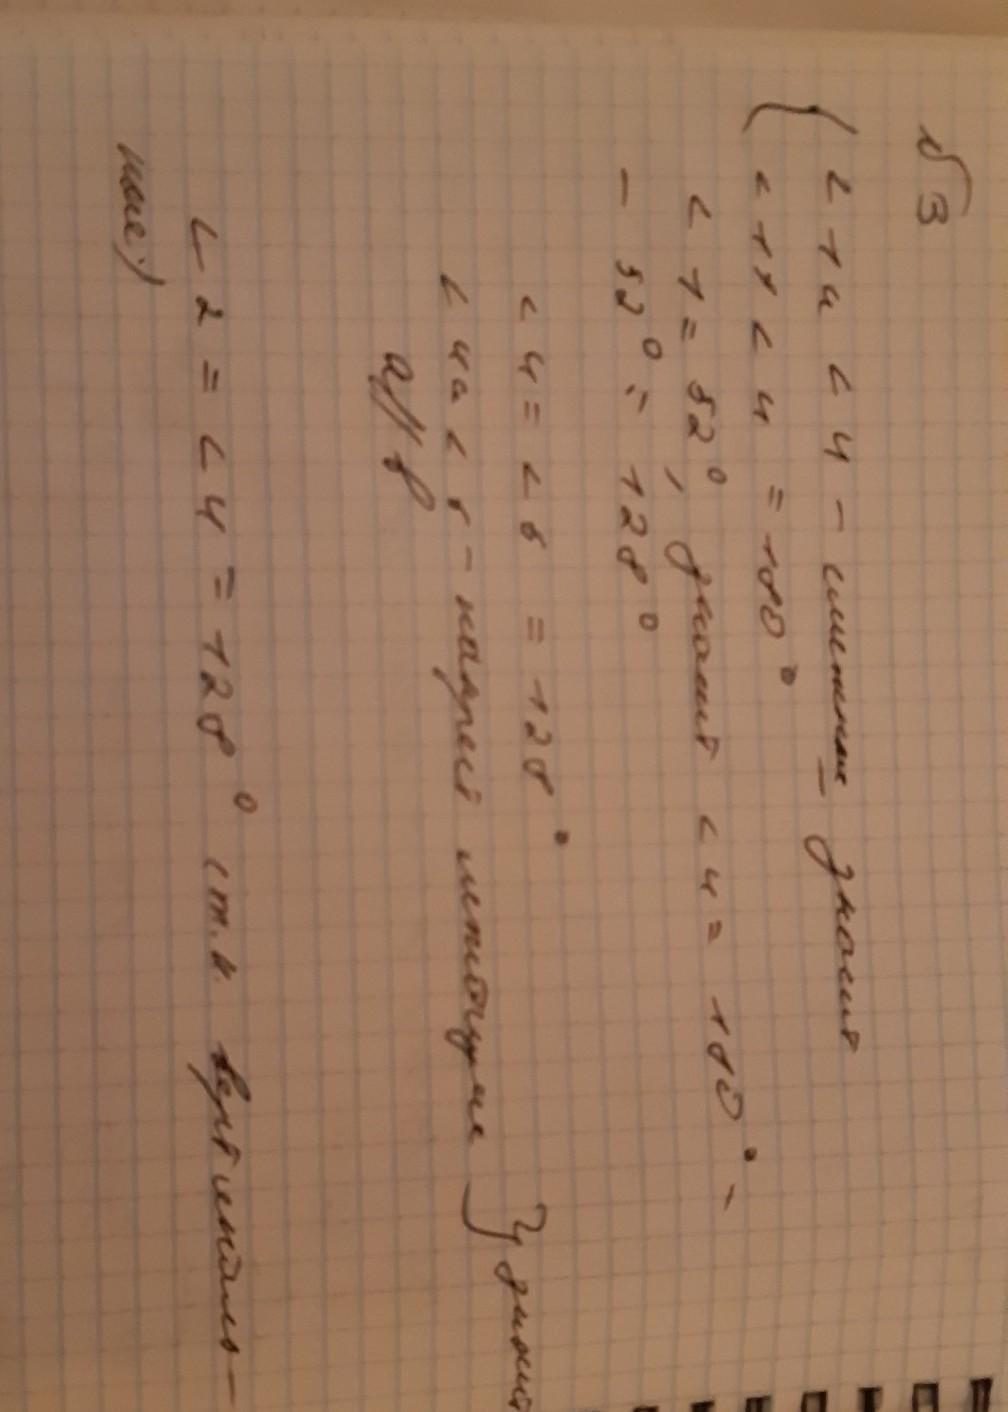 √3
{ ∠1 и ∠4 - смежные значит
∠1 + ∠4 = 180°
∠1 = 52°, значит ∠4 = 180° -
- 52° = 128°
∠4 = ∠6 = 128°
∠4 и ∠6 - накрест лежащие } значит
a//b
∠2 = ∠4 = 128° (т.к. вертикаль-
ные)